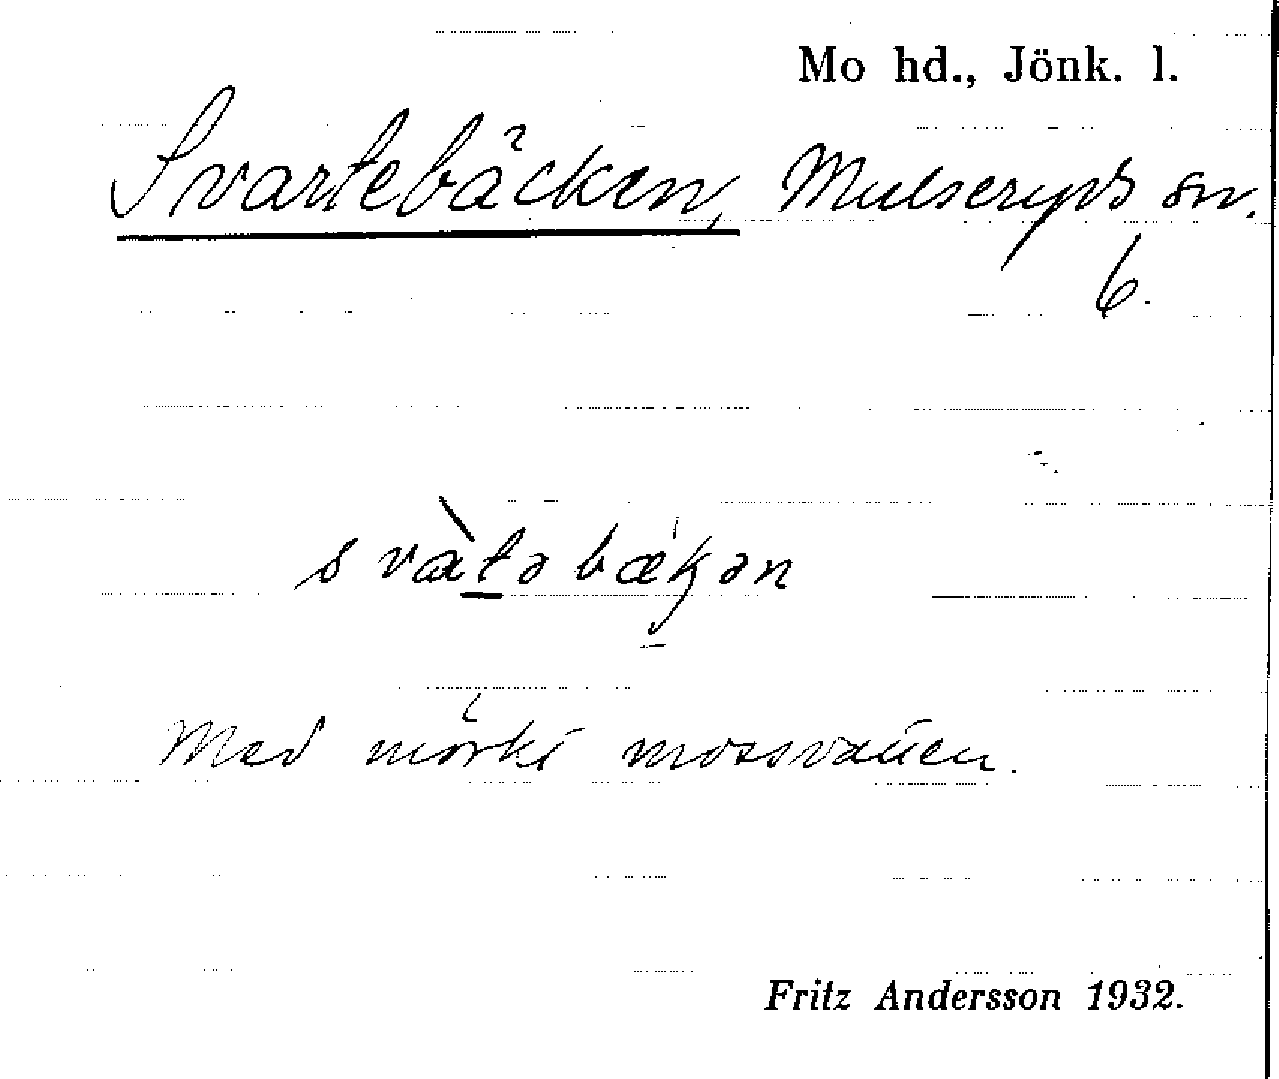 Mo hd., Jönk. l.
Svartebäcken, Mulseryds sn.
6.
svàtəbækən
Med mörkt mossvatten.
Fritz Andersson 1932.